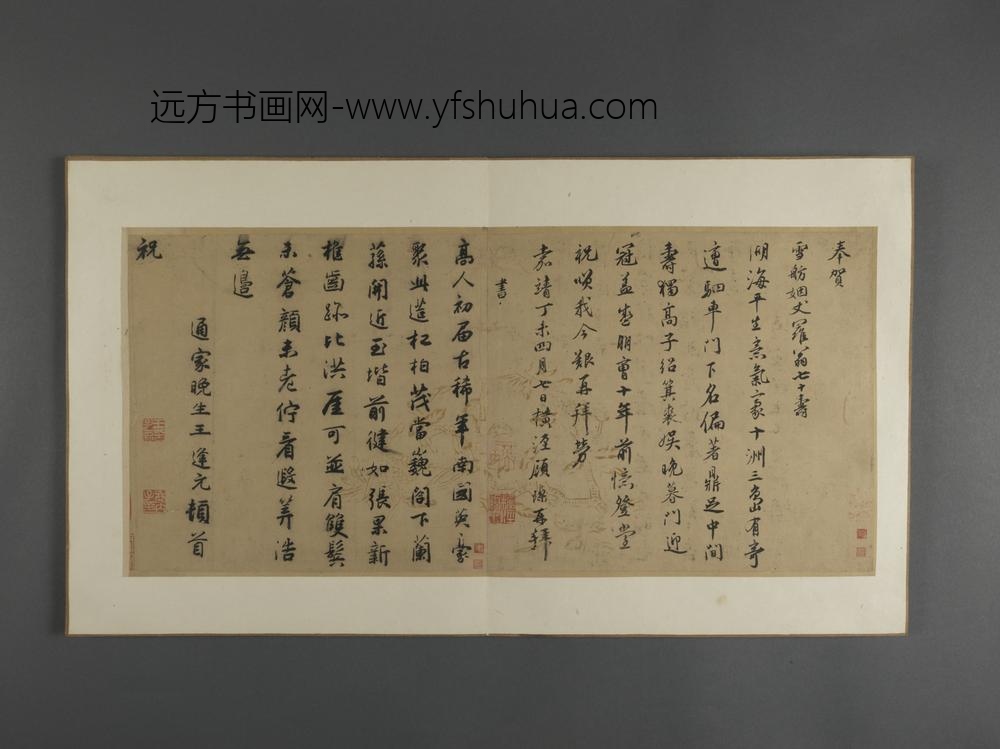 远方书画网-www.yfshuhua.com
奉賀
雪舫姻丈羅翁七十壽
湖海平生意氣豪十洲三島有奇
逢駟車門下名偏著鼎足中間
壽獨高子紹箕裘娛晚暮門迎
冠蓋盛朋曹十年前憶登堂
祝唄我今艱再拜勞
嘉靖丁未四月七日橫涇顧
再拜
書
高人初届古稀年南國英豪
聚此筵松柏茂當巍閣下蘭
蓀開近玉堦前健如張果新
樵齒跡比洪厓可並肩雙鬢
未蒼顏未老佇看遐筭浩
無邊
通家晚生王逢元頓首
祝